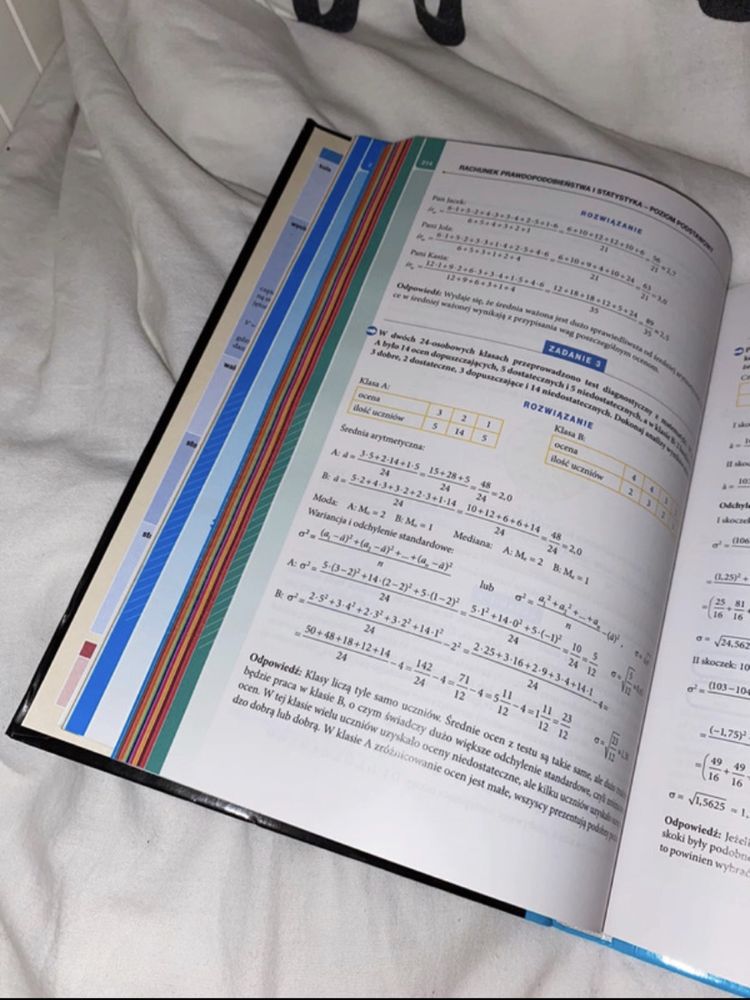 214
RACHUNEK PRAWDOPODOBIEŃSTWA I STATYSTYKA – POZIOM PODSTAWOWY
ROZWIĄZANIE
Pan Jacek:
= (6·1+5·2+4·3+3·4+2·5+1·6)/(6+5+4+3+2+1) = (6+10+12+12+10+6)/21 = 56/21 ≈ 2,7
Pani Jola:
= (6·1+5·2+3·3+1·4+2·5+4·6)/(6+5+3+1+2+4) = (6+10+9+4+10+24)/21 = 63/21 = 3,0
Pani Kasia:
= (12·1+9·2+6·3+3·4+1·5+4·6)/(12+9+6+3+1+4) = (12+18+18+12+5+24)/35 = 89/35 ≈ 2,5
Odpowiedź: Wydaje się, że średnia ważona jest dużo sprawiedliwsza od średniej
ce w średniej ważonej wynikają z przypisania wag poszczególnym ocenom.
ZADANIE 3
W dwóch 24-osobowych klasach przeprowadzono test diagnostyczny z matematyki.
A było 14 ocen dopuszczających, 5 dostatecznych i 5 niedostatecznych, a w klasie B:
3 dobre, 2 dostateczne, 3 dopuszczające i 14 niedostatecznych. Dokonaj analizy
ROZWIĄZANIE
Klasa A:
ocena 3 2 1
ilość uczniów 5 14 5
Klasa B:
ocena
ilość uczniów 2 3 2
Średnia arytmetyczna:
A: ā = (3·5+2·14+1·5)/24 = (15+28+5)/24 = 48/24 = 2,0
B: ā = (5·2+4·3+3·2+2·3+1·14)/24 = (10+12+6+6+14)/24 = 48/24 = 2,0
Moda: A: Mₒ = 2 B: Mₒ = 1 Mediana: A: Mₑ = 2 B: Mₑ = 1
Wariancja i odchylenie standardowe:
σ² = ((a₁–ā)²+(a₂–ā)²+...+(aₙ–ā)²)/n lub σ² = (a₁²+a₂²+...+aₙ²)/n –(ā)²,
A: σ² = (5·(3–2)²+14·(2–2)²+5·(1–2)²)/24 = (5·1²+14·0²+5·(–1)²)/24 = 10/24 = 5/12 σ = √(5/12)
B: σ² = (2·5²+3·4²+2·3²+3·2²+14·1²)/24 –2² = (2·25+3·16+2·9+3·4+14·1)/24 –4=
= (50+48+18+12+14)/24 –4 = 142/24 –4 = 71/12 –4 = 5 11/12 –4 = 1 11/12 = 23/12 σ = √(23/12)
Odpowiedź: Klasy liczą tyle samo uczniów. Średnie ocen z testu są takie same, ale dużo
będzie praca w klasie B, o czym świadczy dużo większe odchylenie standardowe, czyli
ocen. W tej klasie wielu uczniów uzyskało oceny niedostateczne, ale kilku uczniów uzyskało
dzo dobrą lub dobrą. W klasie A zróżnicowanie ocen jest małe, wszyscy prezentują podobny
I sko
II skoc
Odchyl
I skoczek
σ² = (106
= (1,25)²
= (25/16 + 81
σ = √24,562
II skoczek: 10
σ² = (103–104
= (–1,75)²
= (49/16 + 49/16
σ = √1,5625 ≈ 1,
Odpowiedź: Jeżeli
skoki były podobne
to powinien wybrać